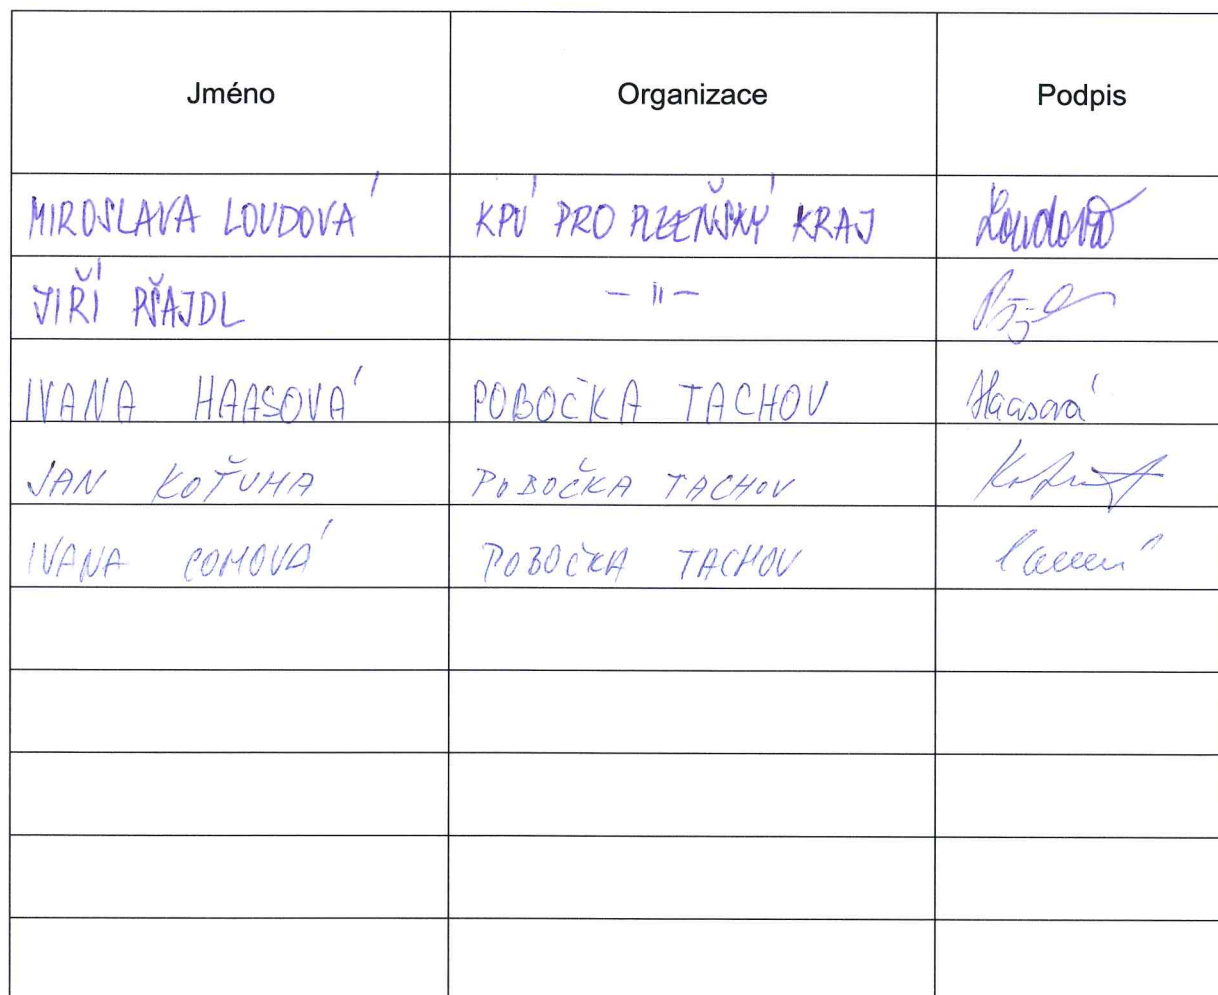 Jméno Organizace Podpis
MIROSLAVA LOUDOVÁ KPÚ PRO PLZEŇSKÝ KRAJ Loudová
JIŘÍ PŠAJDL — 11 —
IVANA HAASOVÁ POBOČKA TACHOV Haasová
JAN KOŤUHA POBOČKA TACHOV
IVANA COMOVÁ POBOČKA TACHOV